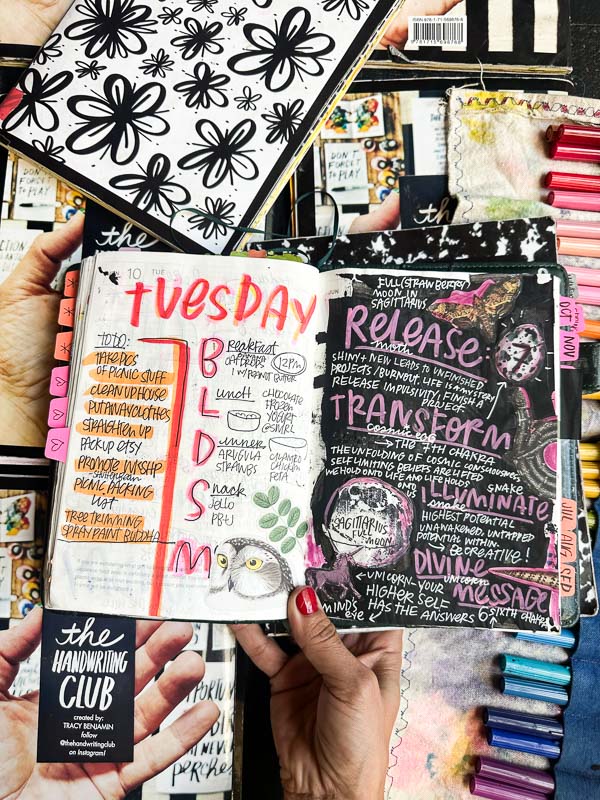 ISBN 978-1-71-569876-6
DON'T
FORGET
TO PLAY
the
DON'T
FORGET
TO PLAY
the
10 TUE
TUESDAY
TO DO:
TAKE PICS
OF PICNIC STUFF
CLEAN UP HOUSE
PUT AWAY CLOTHES
STRAIGHTEN UP
PACK UP ETSY
PROMOTE WKSHP
PICNIC PACKING
LIST
TREE TRIMMING
SPRAY PAINT BUDDHA
Breakfast
12PM
W/ PEANUT BUTTER
Lunch
CHOCOLATE
FROZEN
YOGURT
@SWIRL
Dinner
ARUGULA
STRAWBS
CHICKEN
FETA
Snack
JELLO
PB+J
M
FULL (STRAWBERRY)
MOON IN
SAGITTARIUS
RELEASE
moth
7
SHINY + NEW LEADS TO UNFINISHED
PROJECTS / BURNOUT. LIFE IS A MYSTERY
RELEASE IMPULSIVITY. FINISH A
PROJECT.
TRANSFORM
cosmic egg
→ THE 7TH CHAKRA
THE UNFOLDING OF COSMIC CONSCIOUSNESS,
SELF LIMITING BELIEFS ARE LIFTED
WE HOLD ONTO LIFE AND LIFE HOLDS
ONTO US
SNAKE
ILLUMINATE
snake
HIGHEST POTENTIAL
UNAWAKENED, UNTAPPED
POTENTIAL WITHIN.
→ BE CREATIVE!
SAGITTARIUS
FULL
MOON
DIVINE
unicorn
MESSAGE
← UNICORN - YOUR
HIGHER SELF
HAS THE ANSWERS
MIND'S
EYE
6 SIXTH CHAKRA
OCT NOV
JUL AUG SEP
the
HANDWRITING
CLUB
created by:
TRACY BENJAMIN
follow
@thehandwritingclub
on Instagram!